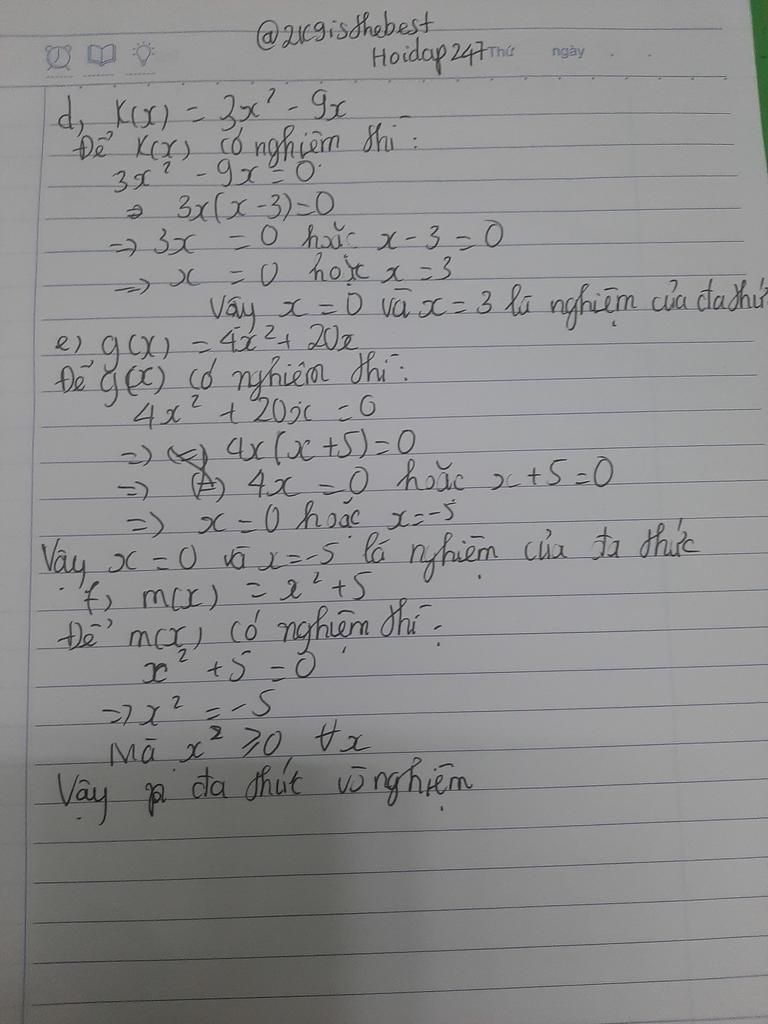 @2kgisthebest
Hoidap247 Thứ ngày . .
d, K(x) = 3x² - 9x
Để K(x) có nghiệm thì :
3x² - 9x = 0
⇒ 3x(x-3)=0
⇒ 3x = 0 hoặc x-3 = 0
⇒ x = 0 hoặc x = 3
Vậy x = 0 và x = 3 là nghiệm của đa thức
e) g(x) = 4x² + 20x
Để g(x) có nghiệm thì :
4x² + 20x = 0
⇒ 4x(x+5)=0
⇒ 4x = 0 hoặc x+5 = 0
⇒ x = 0 hoặc x = -5
Vậy x = 0 và x = -5 là nghiệm của đa thức
f, m(x) = x² + 5
Để m(x) có nghiệm thì :
x² + 5 = 0
⇒ x² = -5
Mà x² ≥ 0, ∀x
Vậy đa thức vô nghiệm